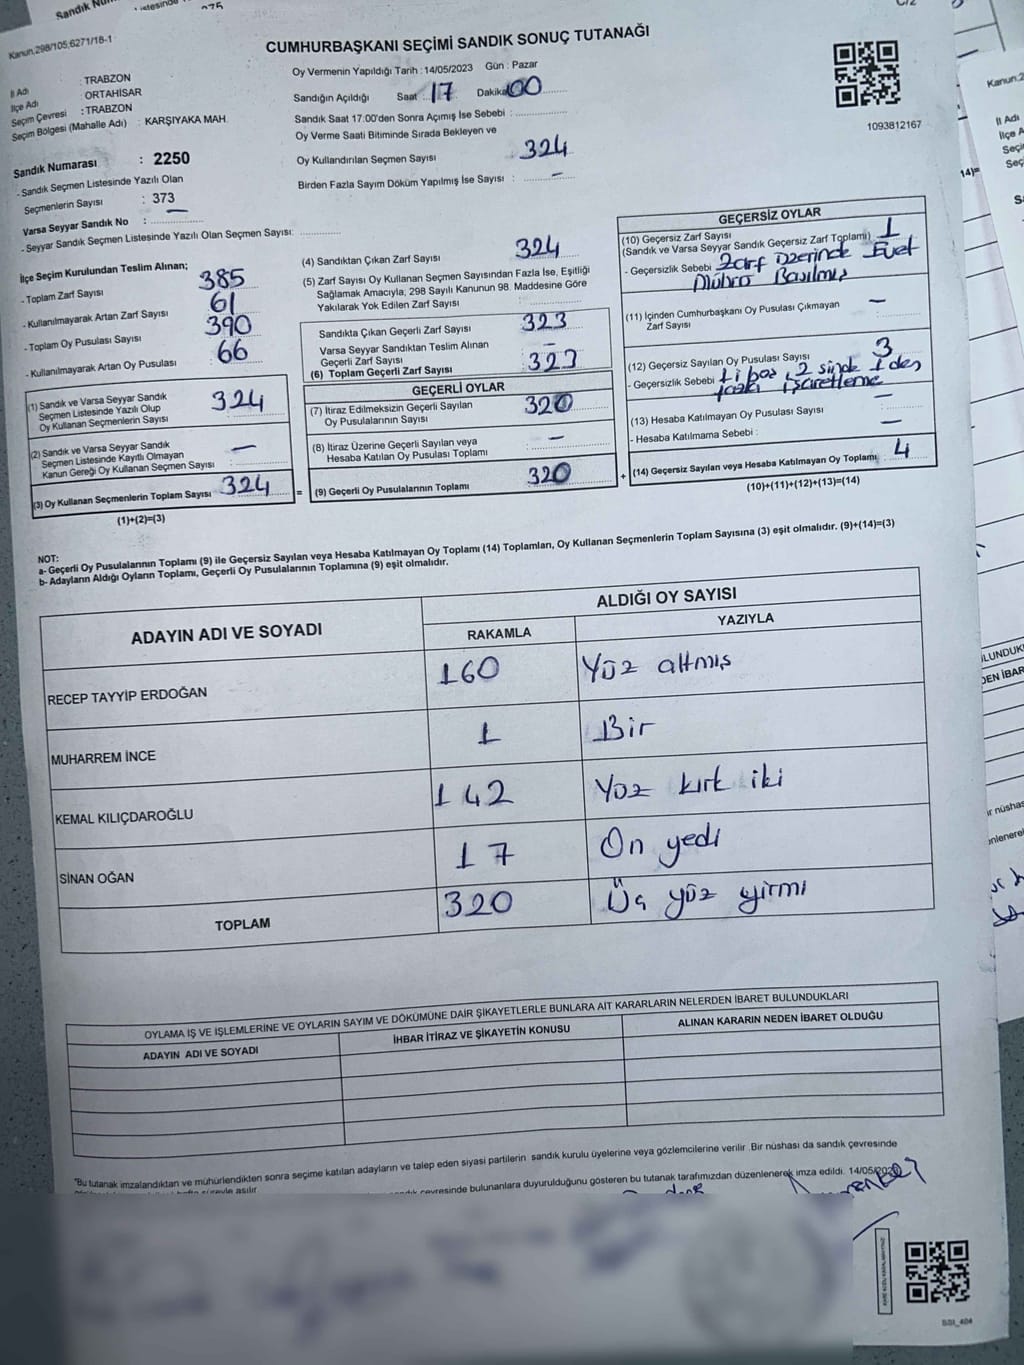 Kanun.298/105;6271/18-1
CUMHURBAŞKANI SEÇİMİ SANDIK SONUÇ TUTANAĞI
İl Adı : TRABZON
İlçe Adı : ORTAHİSAR
Seçim Çevresi : TRABZON
Seçim Bölgesi (Mahalle Adı) : KARŞIYAKA MAH.
Sandık Numarası : 2250
- Sandık Seçmen Listesinde Yazılı Olan
Seçmenlerin Sayısı : 373
Varsa Seyyar Sandık No : —
- Seyyar Sandık Seçmen Listesinde Yazılı Olan Seçmen Sayısı:
Oy Vermenin Yapıldığı Tarih : 14/05/2023 Gün : Pazar
Sandığın Açıldığı Saat : 17 Dakika 00
Sandık Saat 17:00'den Sonra Açımış İse Sebebi :
Oy Verme Saati Bitiminde Sırada Bekleyen ve
Oy Kullandırılan Seçmen Sayısı 324
Birden Fazla Sayım Döküm Yapılmış İse Sayısı : —
1093812167
İlçe Seçim Kurulundan Teslim Alınan;
- Toplam Zarf Sayısı 385
- Kullanılmayarak Artan Zarf Sayısı 61
- Toplam Oy Pusulası Sayısı 390
- Kullanılmayarak Artan Oy Pusulası 66
(1) Sandık ve Varsa Seyyar Sandık
Seçmen Listesinde Yazılı Olup
Oy Kullanan Seçmenlerin Sayısı 324
(2) Sandık ve Varsa Seyyar Sandık
Seçmen Listesinde Kayıtlı Olmayan
Kanun Gereği Oy Kullanan Seçmen Sayısı —
(3) Oy Kullanan Seçmenlerin Toplam Sayısı 324 =
(1)+(2)=(3)
(4) Sandıktan Çıkan Zarf Sayısı 324
(5) Zarf Sayısı Oy Kullanan Seçmen Sayısından Fazla İse, Eşitliği
Sağlamak Amacıyla, 298 Sayılı Kanunun 98. Maddesine Göre
Yakılarak Yok Edilen Zarf Sayısı :
Sandıkta Çıkan Geçerli Zarf Sayısı 323
Varsa Seyyar Sandıktan Teslim Alınan
Geçerli Zarf Sayısı —
(6) Toplam Geçerli Zarf Sayısı 323
GEÇERLİ OYLAR
(7) İtiraz Edilmeksizin Geçerli Sayılan
Oy Pusulalarının Sayısı 320
(8) İtiraz Üzerine Geçerli Sayılan veya
Hesaba Katılan Oy Pusulası Toplamı —
(9) Geçerli Oy Pusulalarının Toplamı 320 +
GEÇERSİZ OYLAR
(10) Geçersiz Zarf Sayısı
(Sandık ve Varsa Seyyar Sandık Geçersiz Zarf Toplamı) 1
- Geçersizlik Sebebi Zarf üzerinde Evet
Mührü Basılmış
(11) İçinden Cumhurbaşkanı Oy Pusulası Çıkmayan
Zarf Sayısı —
(12) Geçersiz Sayılan Oy Pusulası Sayısı 3
- Geçersizlik Sebebi 1 i boş, 2 sinde 1 den
fazla işaretleme
(13) Hesaba Katılmayan Oy Pusulası Sayısı —
- Hesaba Katılmama Sebebi : —
(14) Geçersiz Sayılan veya Hesaba Katılmayan Oy Toplamı 4
(10)+(11)+(12)+(13)=(14)
NOT:
a- Geçerli Oy Pusulalarının Toplamı (9) ile Geçersiz Sayılan veya Hesaba Katılmayan Oy Toplamı (14) Toplamları, Oy Kullanan Seçmenlerin Toplam Sayısına (3) eşit olmalıdır. (9)+(14)=(3)
b- Adayların Aldığı Oyların Toplamı, Geçerli Oy Pusulalarının Toplamına (9) eşit olmalıdır.
ADAYIN ADI VE SOYADI
ALDIĞI OY SAYISI
RAKAMLA YAZIYLA
RECEP TAYYİP ERDOĞAN 160 Yüz altmış
MUHARREM İNCE 1 Bir
KEMAL KILIÇDAROĞLU 142 Yüz kırk iki
SİNAN OĞAN 17 On yedi
TOPLAM 320 Üç yüz yirmi
OYLAMA İŞ VE İŞLEMLERİNE VE OYLARIN SAYIM VE DÖKÜMÜNE DAİR ŞİKAYETLERLE BUNLARA AİT KARARLARIN NELERDEN İBARET BULUNDUKLARI
ADAYIN ADI VE SOYADI İHBAR İTİRAZ VE ŞİKAYETİN KONUSU ALINAN KARARIN NEDEN İBARET OLDUĞU
"Bu tutanak imzalandıktan ve mühürlendikten sonra seçime katılan adayların ve talep eden siyasi partilerin sandık kurulu üyelerine veya gözlemcilerine verilir. Bir nüshası da sandık çevresinde
çevresinde bulunanlara duyurulduğunu gösteren bu tutanak tarafımızdan düzenlenerek imza edildi. 14/05/
Kanun.2
İl Adı
İlçe A
Seçi
14)=